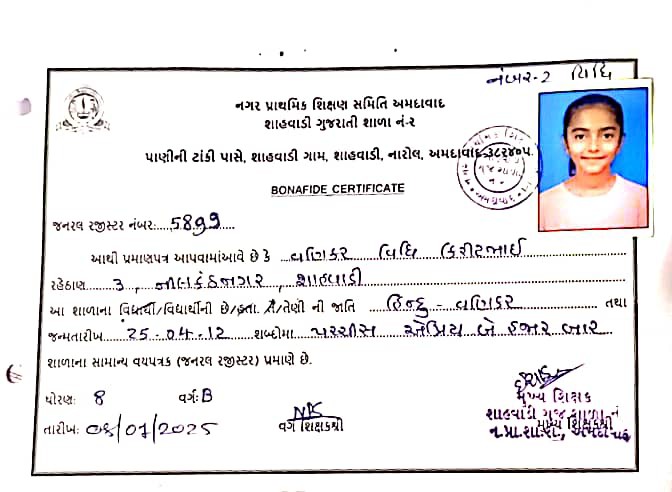 નંબર-2 વિધિ
નગર પ્રાથમિક શિક્ષણ સમિતિ અમદાવાદ
શાહવાડી ગુજરાતી શાળા નં-૨
પાણીની ટાંકી પાસે, શાહવાડી ગામ, શાહવાડી, નારોલ, અમદાવાદ-૩૮૨૪૦૫.
BONAFIDE CERTIFICATE
જનરલ રજીસ્ટર નંબર:
આથી પ્રમાણપત્ર આપવામાંઆવે છે કે વણિકર વિધિ કિરીટભાઈ
રહેઠાણ 3, નીલકંઠનગર, શાહવાડી
આ શાળાના વિદ્યાર્થી/વિદ્યાર્થીની છે/હતા. તે/તેણી ની જાતિ હિન્દુ - વણિકર તથા
જન્મતારીખ 25-04-12 શબ્દોમા પચ્ચીસ એપ્રિલ બે હજાર બાર
શાળાના સામાન્ય વયપત્રક (જનરલ રજીસ્ટર) પ્રમાણે છે.
ધોરણ: 8 વર્ગ: B
તારીખ: /07/2025 વર્ગ શિક્ષકશ્રી મુખ્ય શિક્ષકશ્રી
મુખ્ય શિક્ષક
શાહવાડી ગુજ.શાળા નં
ન.પ્રા.શા.સ., અમદાવાદ